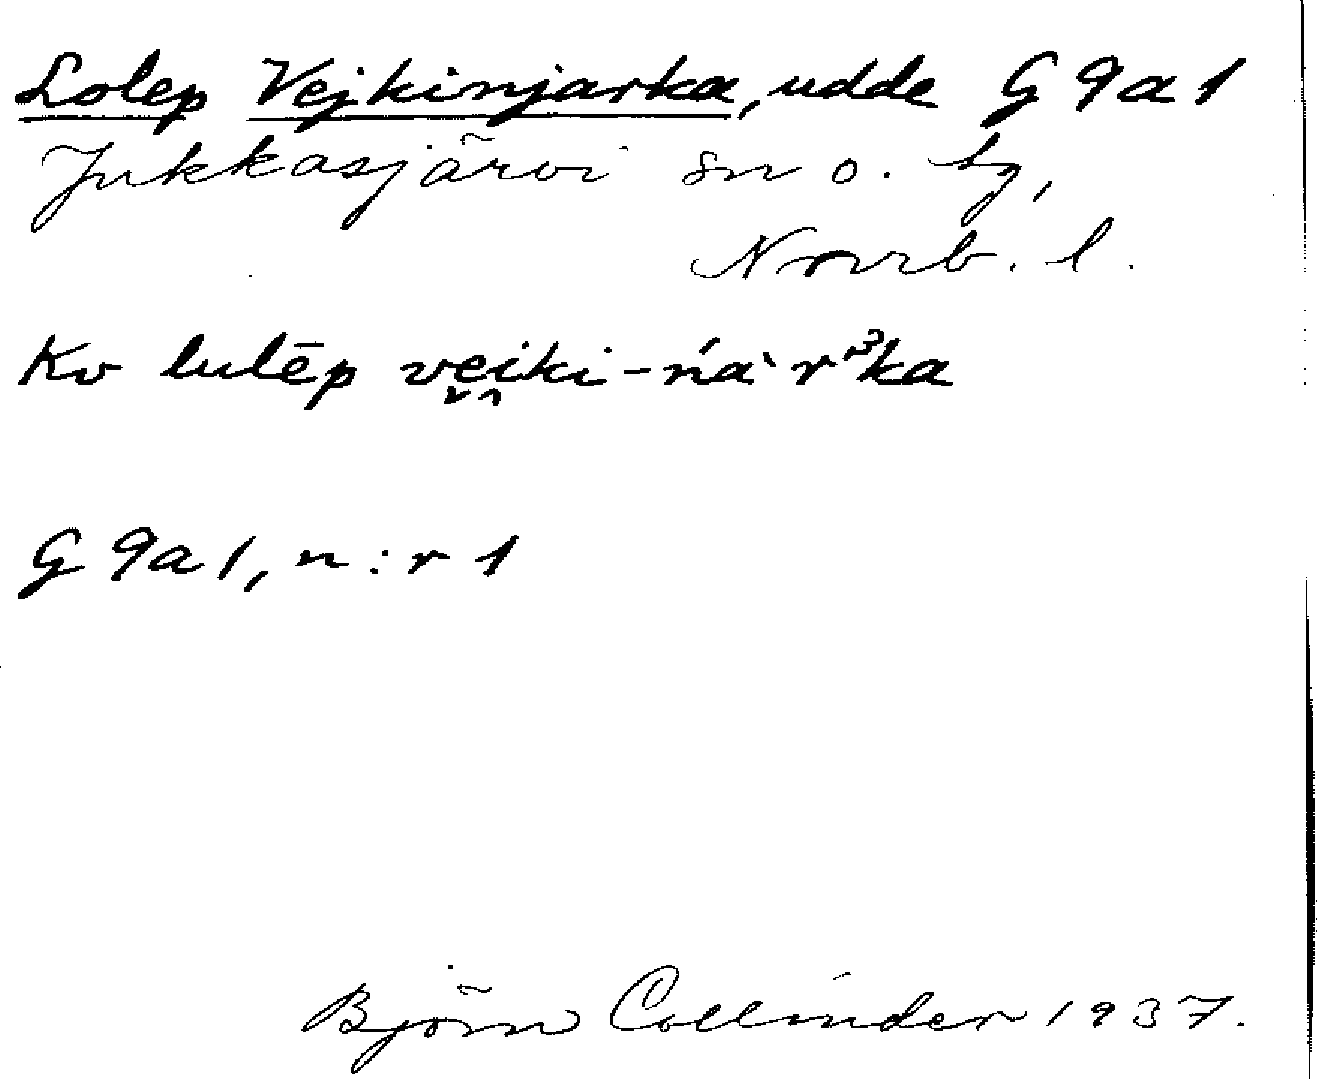 Lolep Vejkinjarka, udde G 9 a 1
Jukkasjärvi sn o. tg,
Norrb. l.
Kv lulēp vei̭ki-ńàrᵌka
G 9 a 1, n:r 1
Björn Collinder 1937.